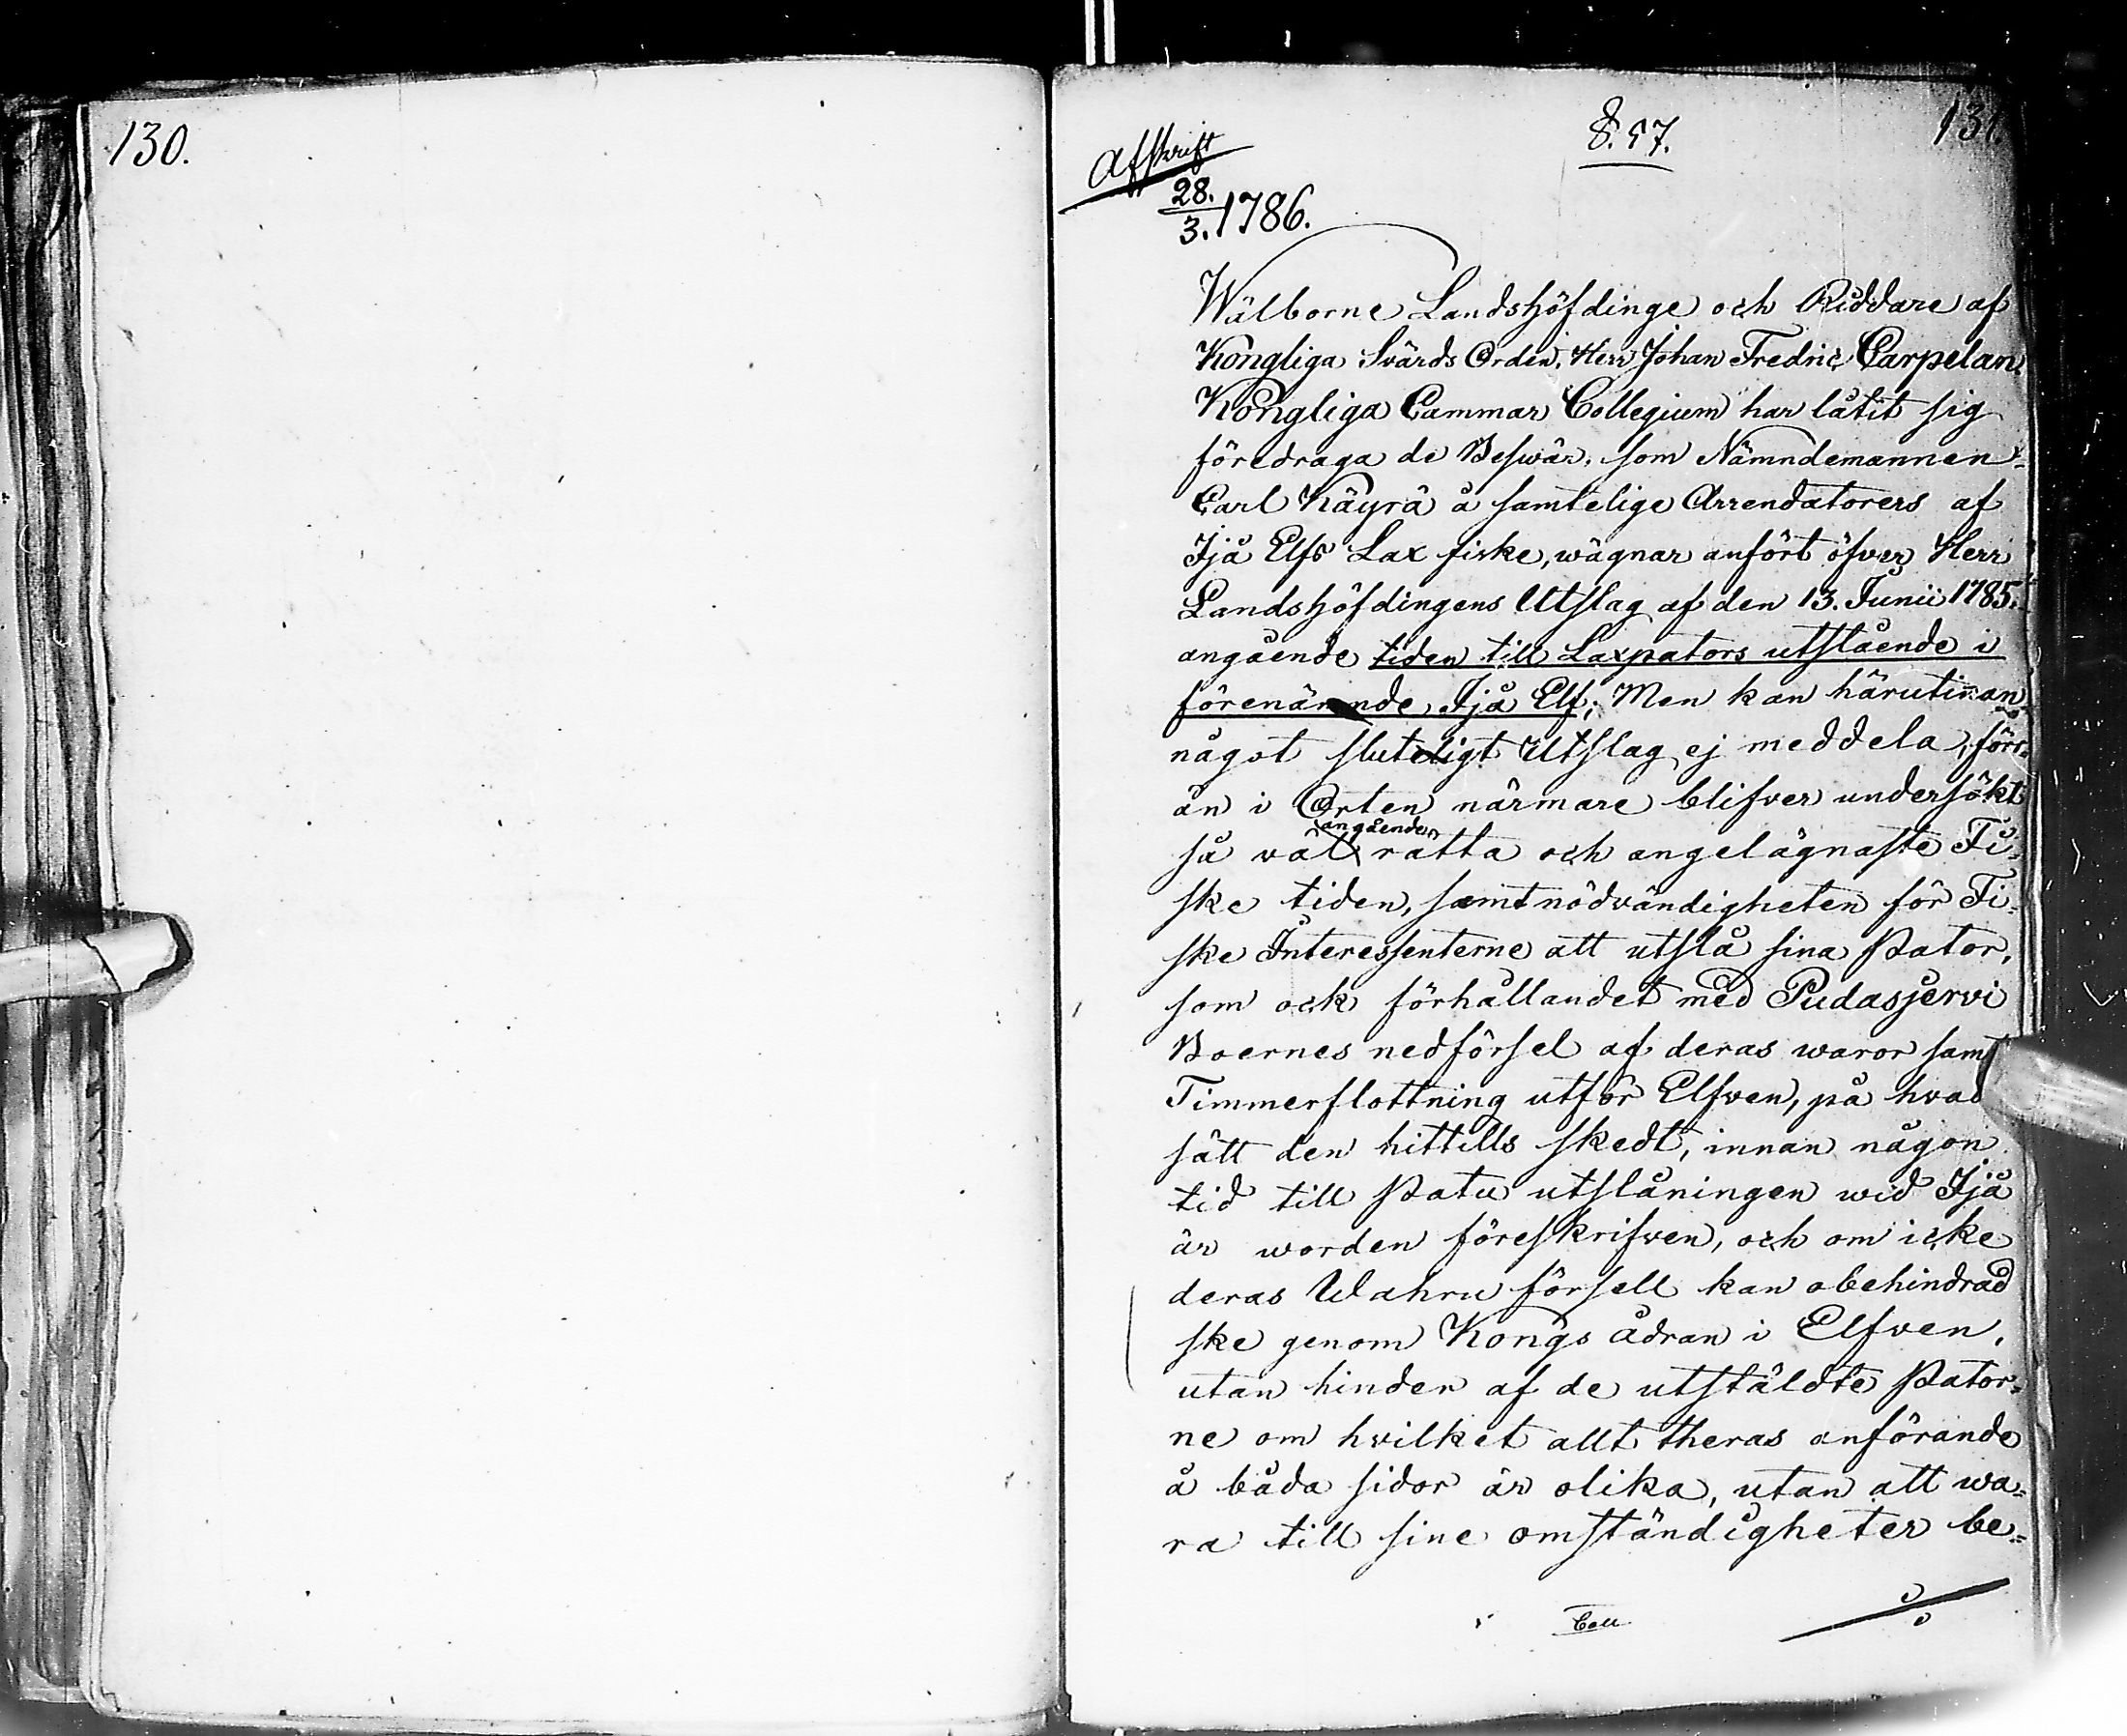 130.
131.
§. 57.
Afskrift
28.
3. 1786.
Wälborne Landshöfdinge och Riddare af
Kongliga Svärds Orden, Herr Johan Fredric Carpelan.
Kongliga Cammar Collegium har låtit sig
föredraga de Beswär, som Nämndemannen
Carl Käyrä å samtelige Arrendatorers af
Ijå Elfs Lax fiske, wägnar anfört öfver Herr
Landshöfdingens Utslag af den 13. Junii 1785.
angående tiden till Laxpators utslående i
förenämnde Ijå Elf; Men kan härutinnan
något sluteligt Utslag ej meddela, förr-
än i Orten närmare blifver undersökt
så väl angående rätta och angelägnaste Fi-
ske tiden, samt nödvändigheten för Fi-
ske Interessenterne att utslå sina pator,
som ock förhållandet med Pudasjervi
Boernes nedförsel af deras waror samt
Timmerflottning utför Elfven, på hvad
sätt den hittills skedt, innan någon
tid till patu utslåningen wid Ijå
är worden föreskrifven, och om icke
deras Wahru försell kan obehindrad
ske genom Kongs ådran i Elfven,
utan hinder af de utstäldte pator-
ne om hvilket allt theras anförande
å båda sidor är olika, utan att wa-
ra till sine omständigheter be-
Coll